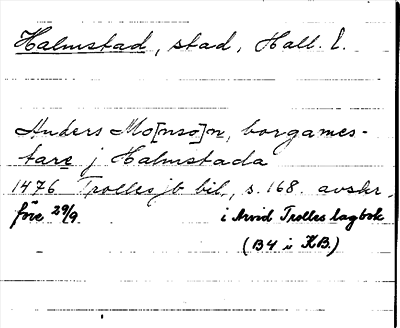 Halmstad, stad, Hall. l.
Anders Mo[nso]n, borgames-
tare j Halmstada
1476 Trolles jb bil., s. 168. avskr.
före 29/9. i Arvid Trolles lagbok
(B4 i KB.)